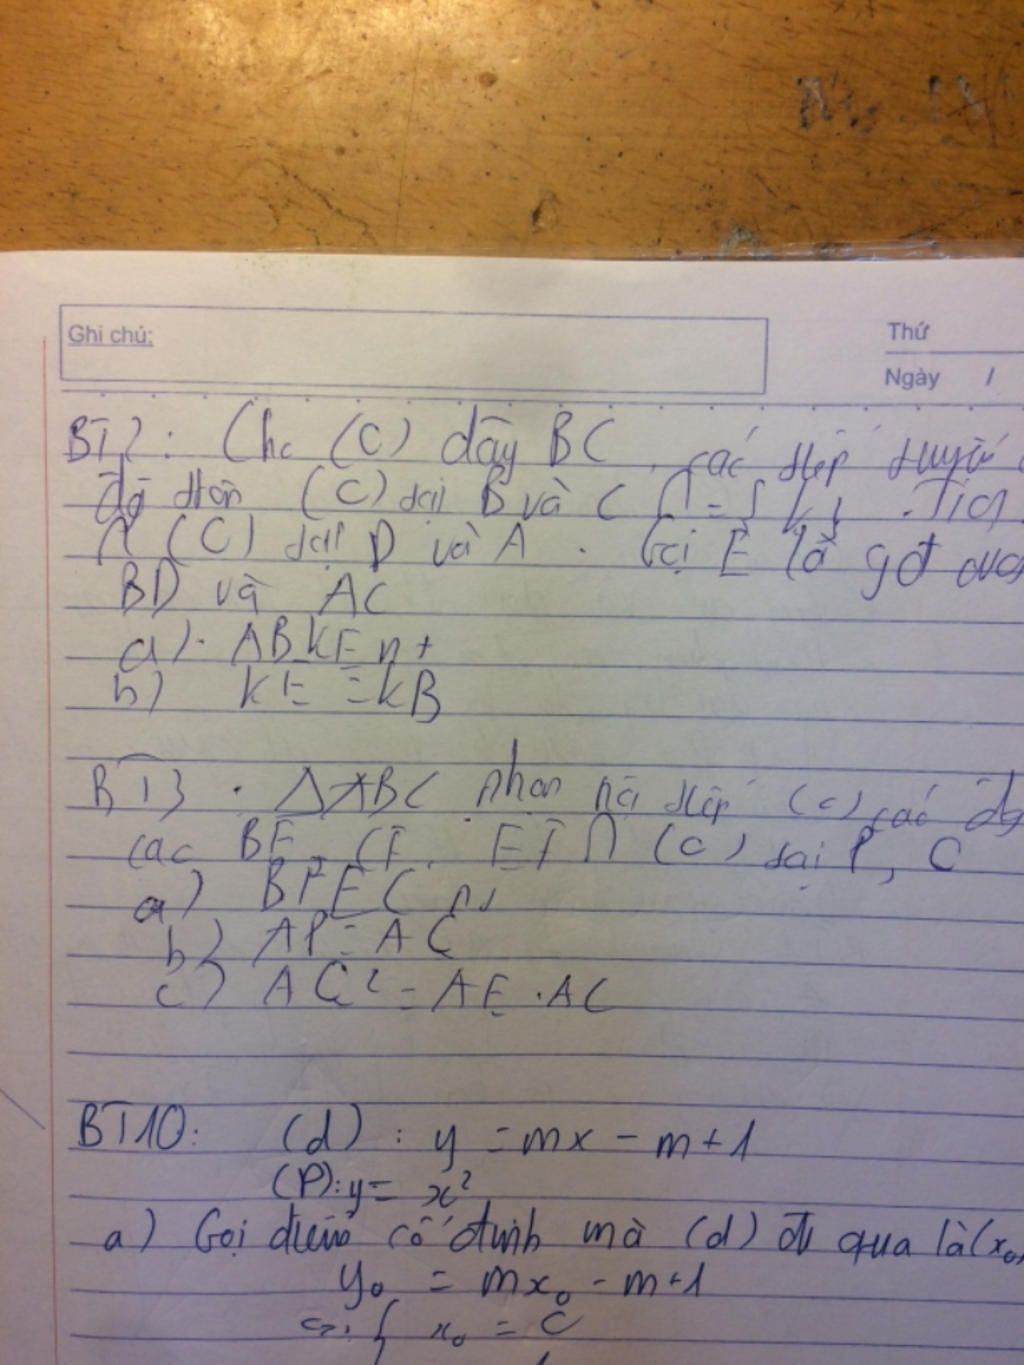 Ghi chú:
Thứ
Ngày /
BT2: Cho (O) dây BC, các tiếp tuyến
(O) tại B và C ∩ =
∩ (O) tại D và A. Gọi E là gđ
BD và AC
a) ABKE nt
b) KE = KB
BT3. △ABC nhọn nội tiếp (O) các
cao BE, CF. EF ∩ (O) tại P, Q
a) BFEC nt
b) AP = AQ
c) AQ² = AE.AC
BT10: (d): y = mx - m+1
(P): y = x²
a) Gọi điểm cố định mà (d) đi qua là (x₀,
y₀ = mx₀ - m+1
x₀ =